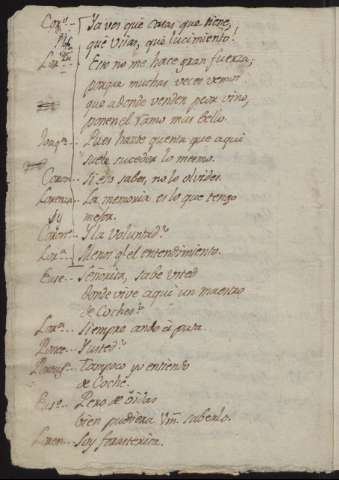 Ya ves què Casas que tiene,
què Viñas, què lucimiento!
Eso no me hace gran fuerza,
porque muchas veces vemos
que adonde venden peor vino,
ponen el Ramo mas bello.
Pues hazte quenta que aqui
suele suceder lo mesmo.
Si eso sabes, no lo olvides.
Loren. La memoria es lo que tengo
mejor.
Y la Voluntad?
Menos qe. el entendimiento.
Euse. Señorita, sabe usted
donde vive aqui un maestro
de Coches?
Lore. Siempre ando à pata.
Ponce. Y usted?
Tampoco yo entiendo
de Coche.
Euse. Pero de
bien pudiera Vm. saberlo.
Loren. Soy frasterica.